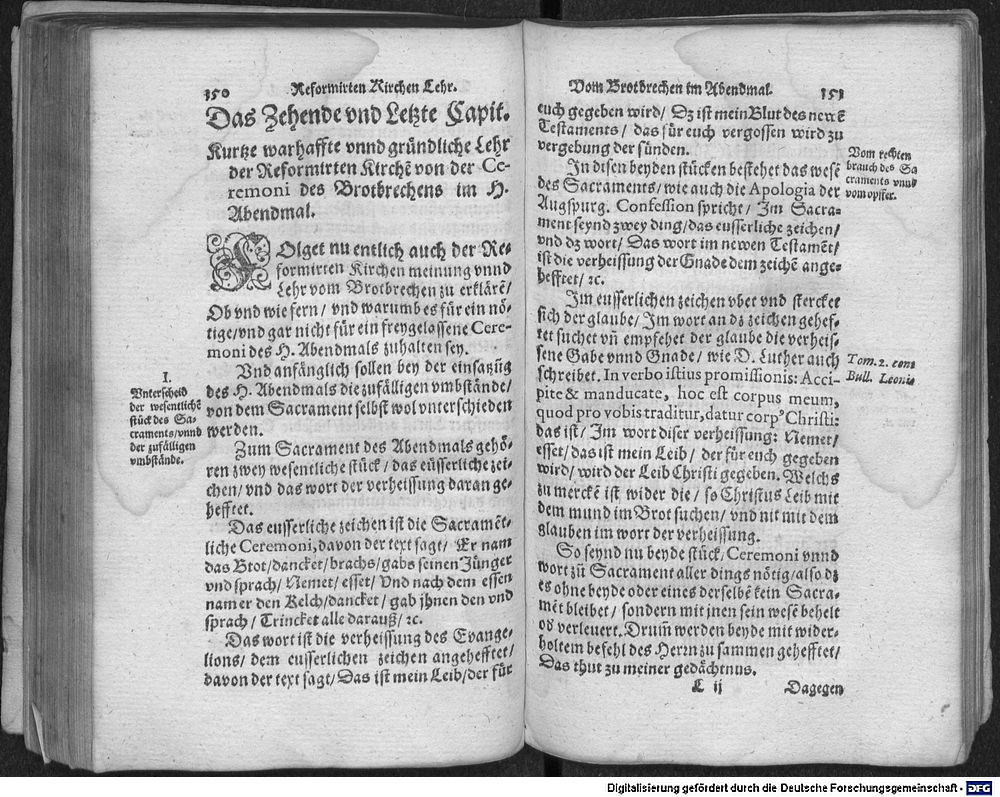 350 Reformirten Kirchen Lehr.
Das Zehende vnd Letzte Capit.
Kurtze warhaffte vnnd gründliche Lehr
der Reformirten Kirchẽ von der Ce-
remoni des Brotbrechens im H.
Abendmal.
FOlget nu entlich auch der Re-
formirten Kirchen meinung vnnd
Lehr vom Brotbrechen zu erklärẽ/
Ob vnd wie fern/ vnd warumb es für ein nö-
tige/vnd gar nicht für ein freygelassene Cere-
moni des H. Abendmals zuhalten sey.
I.
Vnterscheid
der wesentlichẽ
stück des Sa-
craments/vnnd
der zufälligen
vmbstände.
Vnd anfänglich sollen bey der einsatzũg
des H. Abendmals die zufälligen vmbstände/
von dem Sacrament selbst wol vnterschieden
werden.
Zum Sacrament des Abendmals gehö-
ren zwey wesentliche stück/ das eüsserliche zei-
chen/ vnd das wort der verheissung daran ge-
hefftet.
Das eusserliche zeichen ist die Sacramẽt-
liche Ceremoni, davon der text sagt/ Er nam
das Brot/dancket/ brachs/ gabs seinen Jünger
vnd sprach/ Nemet/ esset/ Vnd nach dem essen
nam er den Kelch/dancket/ gab jhnen den vnd
sprach/ Trincket alle darauß/ ꝛc.
Das wort ist die verheissung des Evange-
lions/ dem eusserlichen zeichen angehefftet/
davon der text sagt/ Das ist mein Leib/der für
Vom Brotbrechen im Abendmal. 351
euch gegeben wird/ Dz ist mein Blut des newẽ
Testaments/ das für euch vergossen wird zu
vergebung der sünden.
Vom rechten
brauch des Sa
craments vnnd
vom opffer.
In disen beyden stücken bestehet das wesẽ
des Sacraments/ wie auch die Apologia der
Augspurg. Confession spricht/ Im Sacra-
ment seynd zwey ding/das eusserliche zeichen/
vnd dz wort/ Das wort im newen Testamẽt/
ist die verheissung der Gnade dem zeichẽ ange-
hefftet/ ꝛc.
Im eusserlichen zeichen vbet vnd stercket
sich der glaube/ Im wort an dz zeichen gehef-
tet suchet vñ empfehet der glaube die verheis-
sene Gabe vnnd Gnade/ wie D. Luther auch
Tom. 2. cont
Bull. Leonis
schreibet. In verbo istius promissionis: Acci-
pite & manducate, hoc est corpus meum,
quod pro vobis traditur, datur corpꝰ Christi:
das ist/ Im wort diser verheissung: Nemet/
esset/das ist mein Leib/ der für euch gegeben
wird/ wird der Leib Christi gegeben. Welchs
zu merckẽ ist wider die/ so Christus Leib mit
dem mund im Brot suchen/ vnd nit mit dem
glauben im wort der verheissung.
So seynd nu beyde stück/ Ceremoni vnnd
wort zũ Sacrament aller dings nötig/also dz
es ohne beyde oder eines derselbẽ kein Sacra-
mẽt bleibet/ sondern mit jnen sein wesẽ behelt
od verleuert. Drum̃ werden beyde mit wider-
holtem befehl des Herrn zu sammen gehefftet/
Das thut zu meiner gedächtnus.
L ij Dagegen
Digitalisierung gefördert durch die Deutsche Forschungsgemeinschaft - DFG